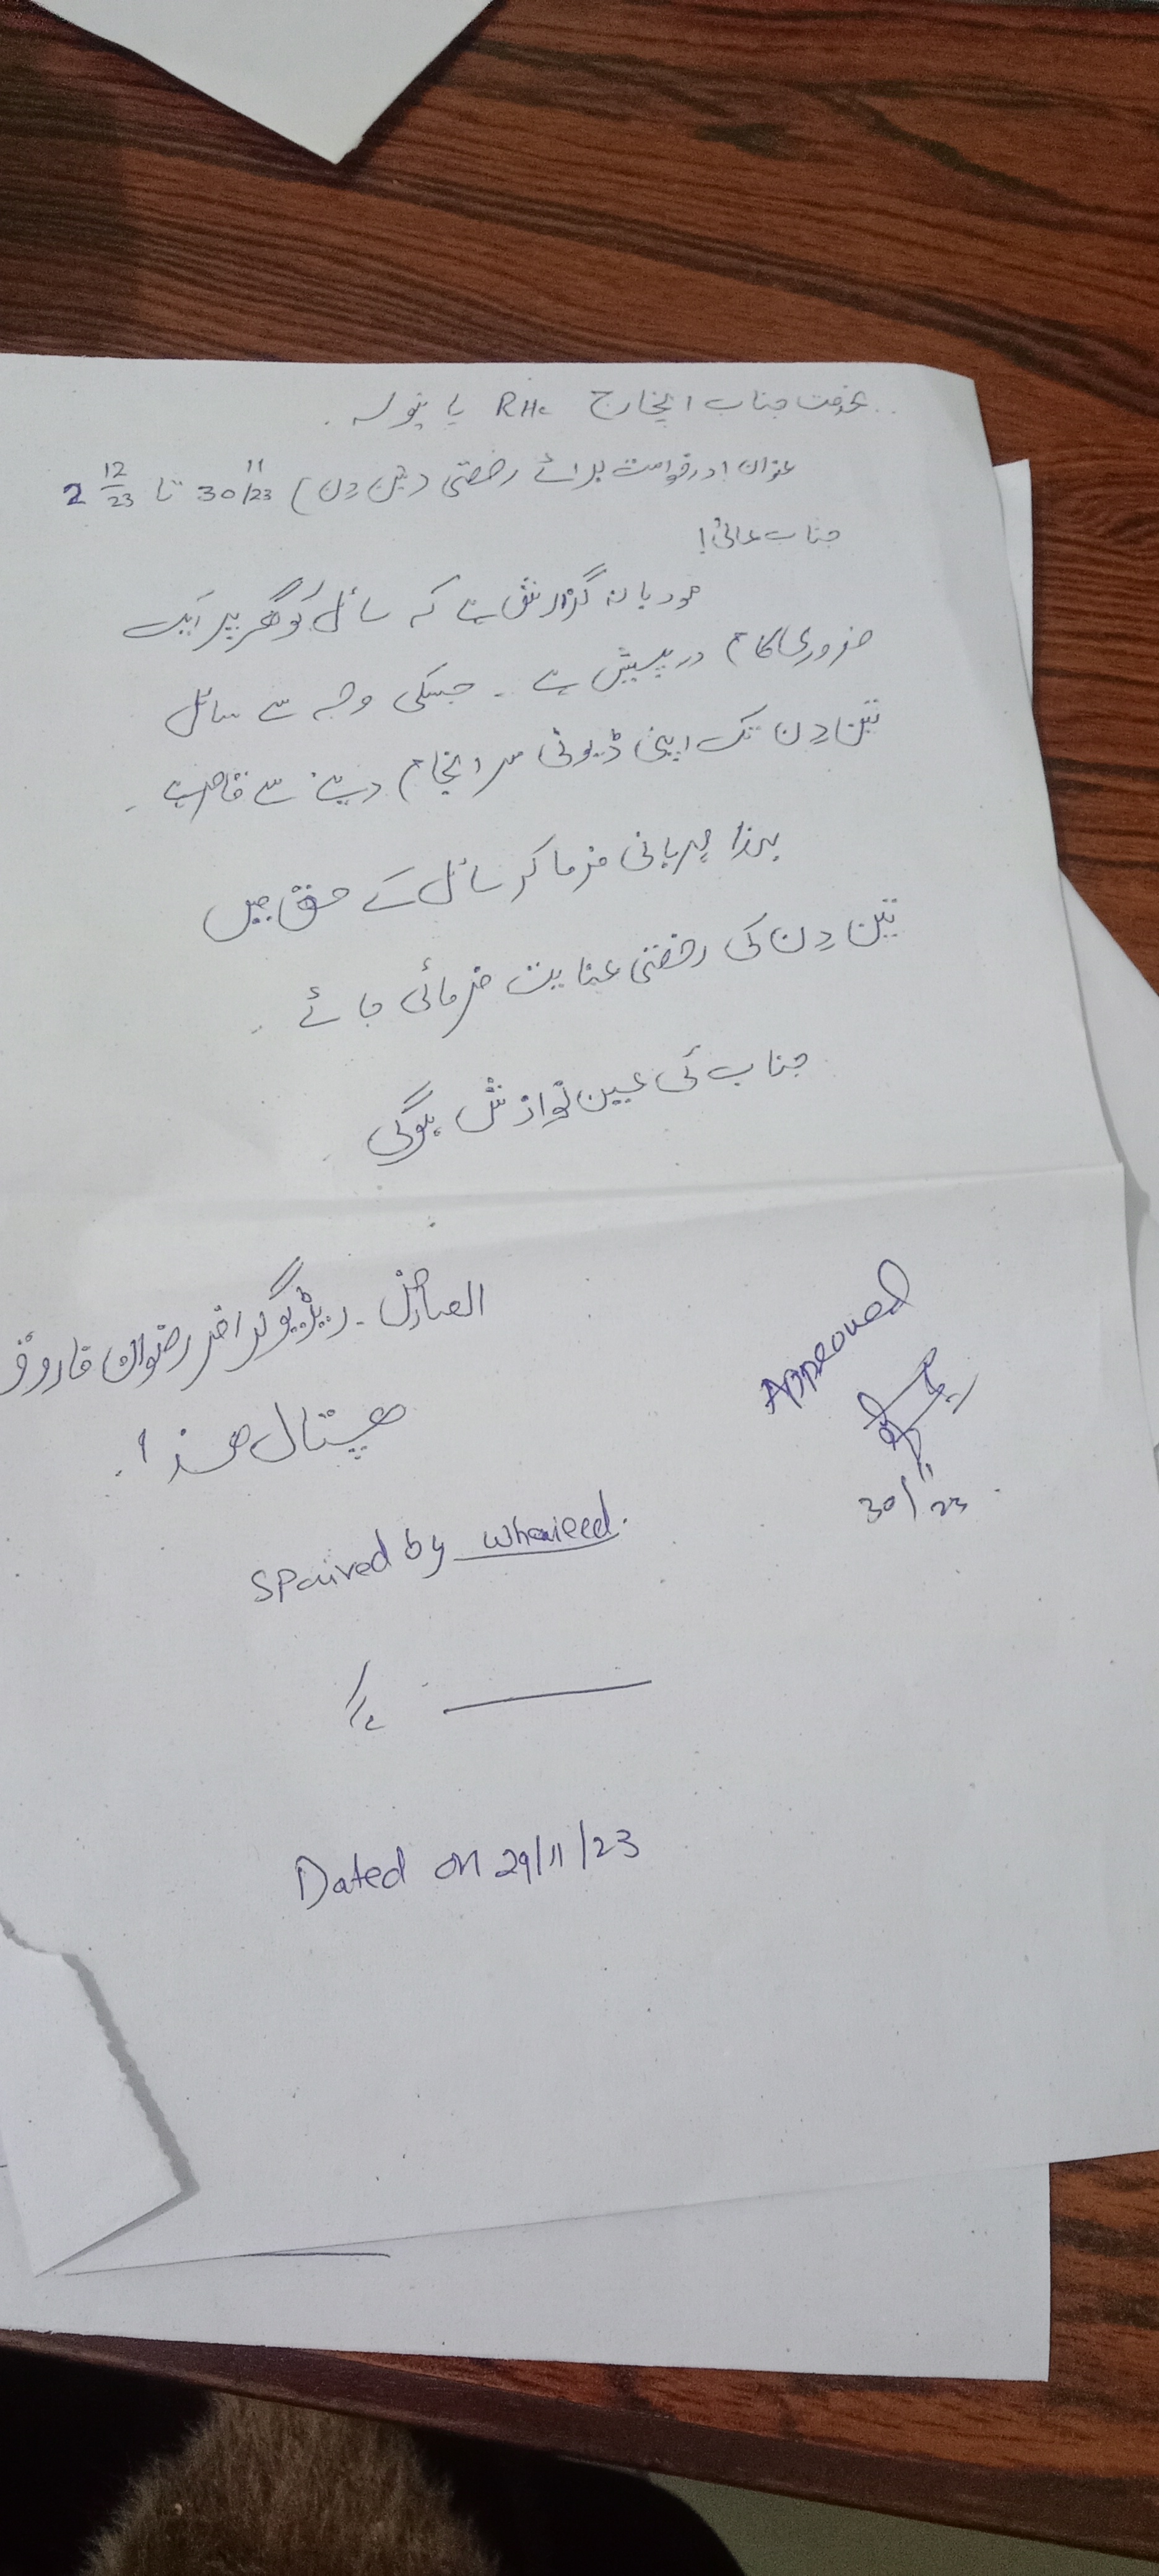 بخدمت جناب انچارج RHc یا نپولہ۔
عنوان: درخواست برائے رخصتی (تین دن) 30/11/23 تا 2 12/23
جناب عالیٰ!
مودبانہ گزارش ہے کہ سائل کو گھر پر ایک
ضروری کام درپیش ہے ۔ جسکی وجہ سے سائل
تین دن تک اپنی ڈیوٹی سرانجام دینے سے قاصر ہے ۔
لہذا مہربانی فرما کر سائل کے حق میں
تین دن کی رخصتی عنایت فرمائی جائے ۔
جناب کی عین نوازش ہوگی
العارض ۔ ریڈیوگرافر رضوان فاروق
ھسپتال ھذا ۔
Approved
30/11/23
SPaired by whaieed.
Dated on 29/11/23